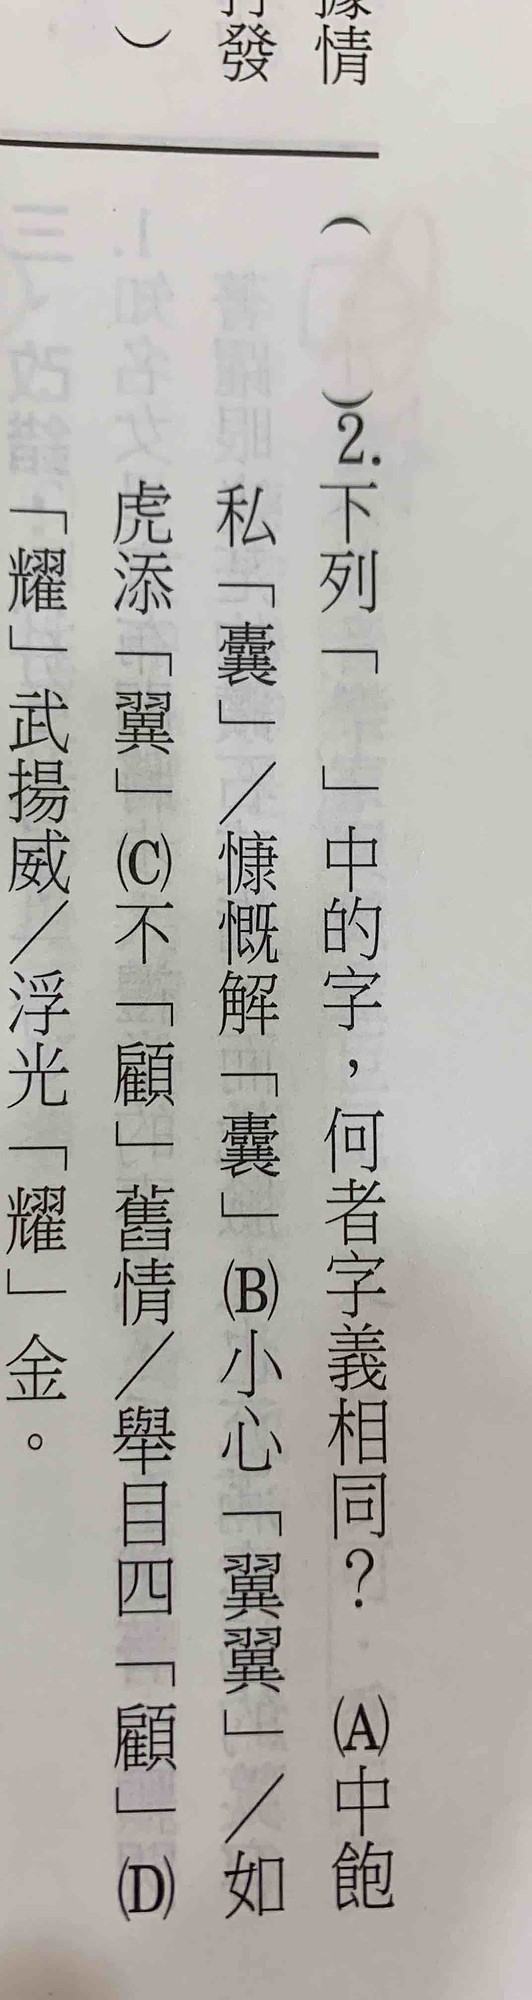 據情
打發
）
（　）2.下列「　」中的字，何者字義相同？　(A)中飽
私「囊」／慷慨解「囊」(B)小心「翼翼」／如
虎添「翼」(C)不「顧」舊情／舉目四「顧」(D)
「耀」武揚威／浮光「耀」金。